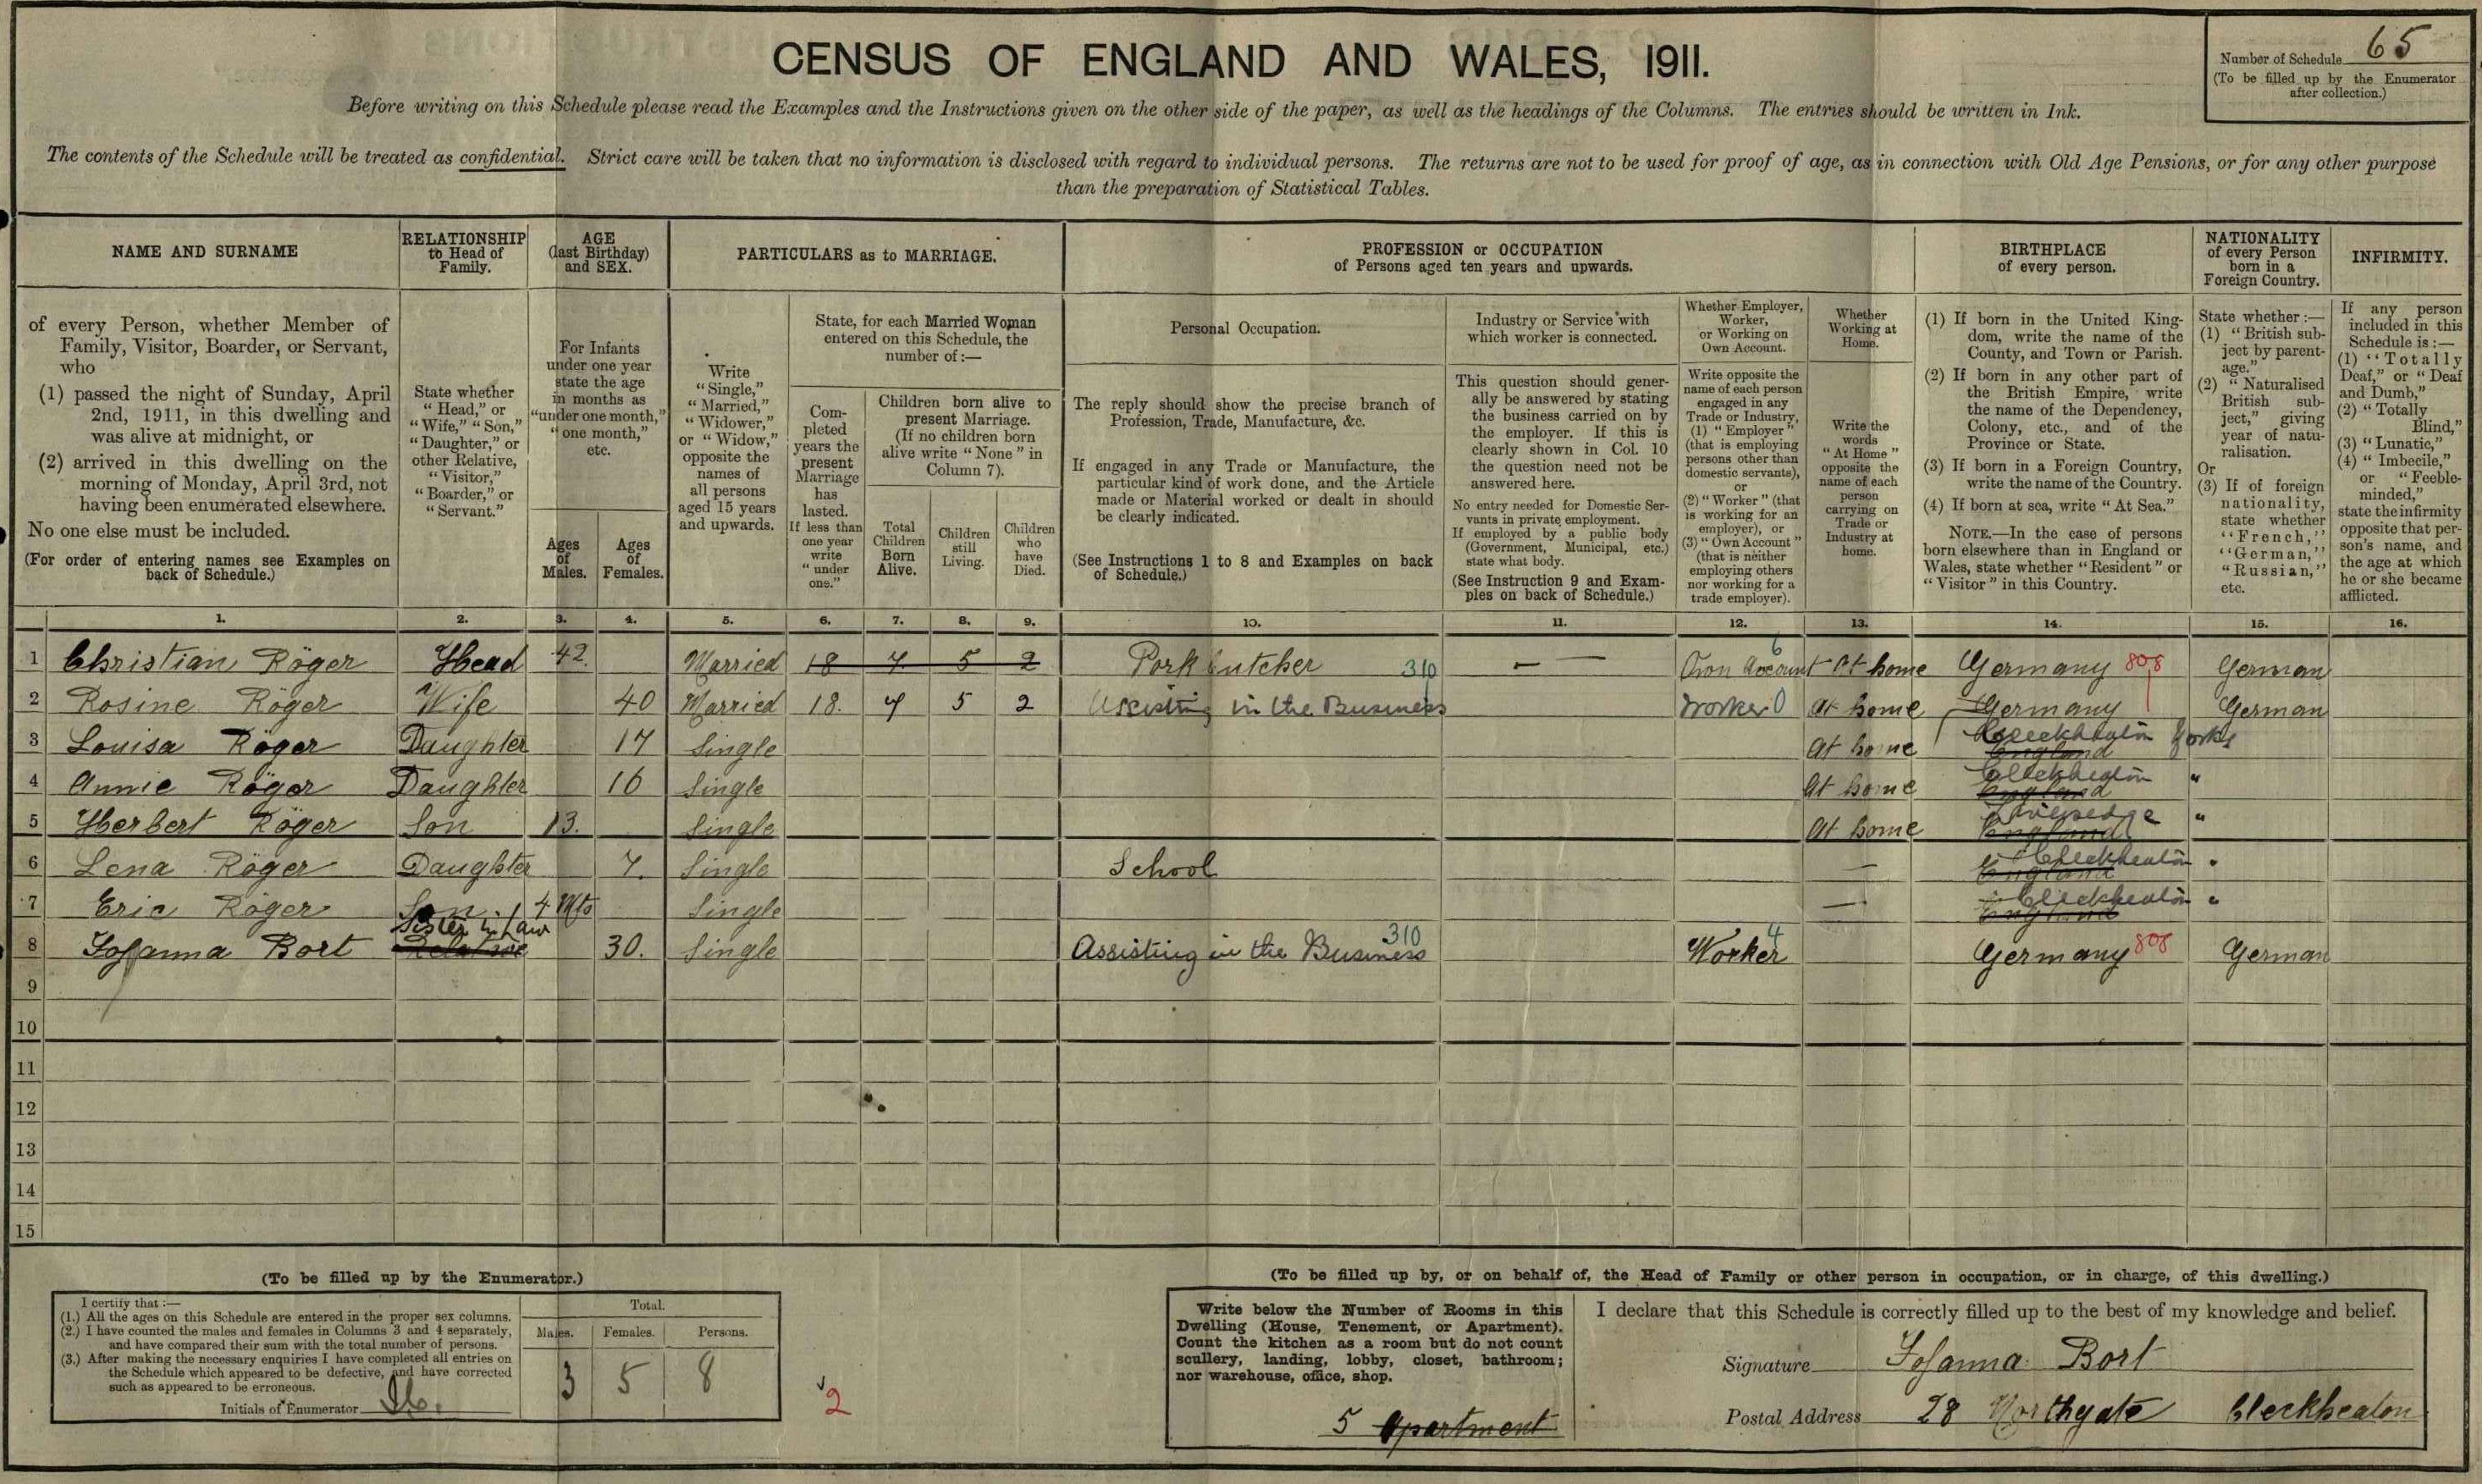 CENSUS OF ENGLAND AND WALES, 1911.
Number of Schedule 65
(To be filled up by the Enumerator
after collection.)
Before writing on this Schedule please read the Examples and the Instructions given on the other side of the paper, as well as the headings of the Columns. The entries should be written in Ink.
The contents of the Schedule will be treated as confidential. Strict care will be taken that no information is disclosed with regard to individual persons. The returns are not to be used for proof of age, as in connection with Old Age Pensions, or for any other purpose
than the preparation of Statistical Tables.
NAME AND SURNAME
of every Person, whether Member of
Family, Visitor, Boarder, or Servant,
who
(1) passed the night of Sunday, April
2nd, 1911, in this dwelling and
was alive at midnight, or
(2) arrived in this dwelling on the
morning of Monday, April 3rd, not
having been enumerated elsewhere.
No one else must be included.
(For order of entering names see Examples on
back of Schedule.)
RELATIONSHIP
to Head of
Family.
State whether
"Head," or
"Wife," "Son,"
"Daughter," or
other Relative,
"Visitor,"
"Boarder," or
"Servant."
AGE
(last Birthday)
and SEX.
For Infants
under one year
state the age
in months as
"under one month,"
"one month,"
etc.
Ages
of
Males.
Ages
of
Females.
PARTICULARS as to MARRIAGE.
Write
"Single,"
"Married,"
"Widower,"
or "Widow,"
opposite the
names of
all persons
aged 15 years
and upwards.
State, for each Married Woman
entered on this Schedule, the
number of:—
Com-
pleted
years the
present
Marriage
has
lasted.
If less than
one year
write
"under
one."
Children born alive to
present Marriage.
(If no children born
alive write "None" in
Column 7).
Total
Children
Born
Alive.
Children
still
Living.
Children
who
have
Died.
PROFESSION or OCCUPATION
of Persons aged ten years and upwards.
Personal Occupation.
The reply should show the precise branch of
Profession, Trade, Manufacture, &c.
If engaged in any Trade or Manufacture, the
particular kind of work done, and the Article
made or Material worked or dealt in should
be clearly indicated.
(See Instructions 1 to 8 and Examples on back
of Schedule.)
Industry or Service with
which worker is connected.
This question should gener-
ally be answered by stating
the business carried on by
the employer. If this is
clearly shown in Col. 10
the question need not be
answered here.
No entry needed for Domestic Ser-
vants in private employment.
If employed by a public body
(Government, Municipal, etc.)
state what body.
(See Instruction 9 and Exam-
ples on back of Schedule.)
Whether Employer,
Worker,
or Working on
Own Account.
Write opposite the
name of each person
engaged in any
Trade or Industry,
(1) "Employer"
(that is employing
persons other than
domestic servants),
or
(2) "Worker" (that
is working for an
employer), or
(3) "Own Account"
(that is neither
employing others
nor working for a
trade employer).
Whether
Working at
Home.
Write the
words
"At Home"
opposite the
name of each
person
carrying on
Trade or
Industry at
home.
BIRTHPLACE
of every person.
(1) If born in the United King-
dom, write the name of the
County, and Town or Parish.
(2) If born in any other part of
the British Empire, write
the name of the Dependency,
Colony, etc., and of the
Province or State.
(3) If born in a Foreign Country,
write the name of the Country.
(4) If born at sea, write "At Sea."
NOTE.—In the case of persons
born elsewhere than in England or
Wales, state whether "Resident" or
"Visitor" in this Country.
NATIONALITY
of every Person
born in a
Foreign Country.
State whether:—
(1) "British sub-
ject by parent-
age."
(2) "Naturalised
British sub-
ject," giving
year of natu-
ralisation.
Or
(3) If of foreign
nationality,
state whether
"French,"
"German,"
"Russian,"
etc.
INFIRMITY.
If any person
included in this
Schedule is:—
(1) "Totally
Deaf," or "Deaf
and Dumb,"
(2) "Totally
Blind,"
(3) "Lunatic,"
(4) "Imbecile,"
or "Feeble-
minded,"
state the infirmity
opposite that per-
son's name, and
the age at which
he or she became
afflicted.
1. 2. 3. 4. 5. 6. 7. 8. 9. 10. 11. 12. 13. 14. 15. 16.
1 Christian Röger Head 42. Married 18 7 5 2 Pork butcher 310 — — Own Account 6 At home Germany 808 German
2 Rosine Röger Wife 40 Married 18. 7 5 2 Assisting in the Business Worker 0 At home Germany German
3 Louisa Röger Daughter 17 Single At home England Cleckheaton Yorks
4 Annie Röger Daughter 16 Single At home England Cleckheaton "
5 Herbert Röger Son 13. Single At home England Liversedge "
6 Lena Röger Daughter 7. Single School — England Cleckheaton "
7 Eric Röger Son. 4 Mts Single — England Cleckheaton "
8 Johanna Bort Relative Sister in Law 30. Single Assisting in the Business 310 Worker 4 Germany 808 German
9
10
11
12
13
14
15
(To be filled up by the Enumerator.)
I certify that:—
(1.) All the ages on this Schedule are entered in the proper sex columns.
(2.) I have counted the males and females in Columns 3 and 4 separately,
and have compared their sum with the total number of persons.
(3.) After making the necessary enquiries I have completed all entries on
the Schedule which appeared to be defective, and have corrected
such as appeared to be erroneous.
Initials of Enumerator
Total.
Males. Females. Persons.
3 5 8
2
(To be filled up by, or on behalf of, the Head of Family or other person in occupation, or in charge, of this dwelling.)
Write below the Number of Rooms in this
Dwelling (House, Tenement, or Apartment).
Count the kitchen as a room but do not count
scullery, landing, lobby, closet, bathroom;
nor warehouse, office, shop.
5 Apartment
I declare that this Schedule is correctly filled up to the best of my knowledge and belief.
Signature Johanna Bort
Postal Address 28 Northgate Cleckheaton